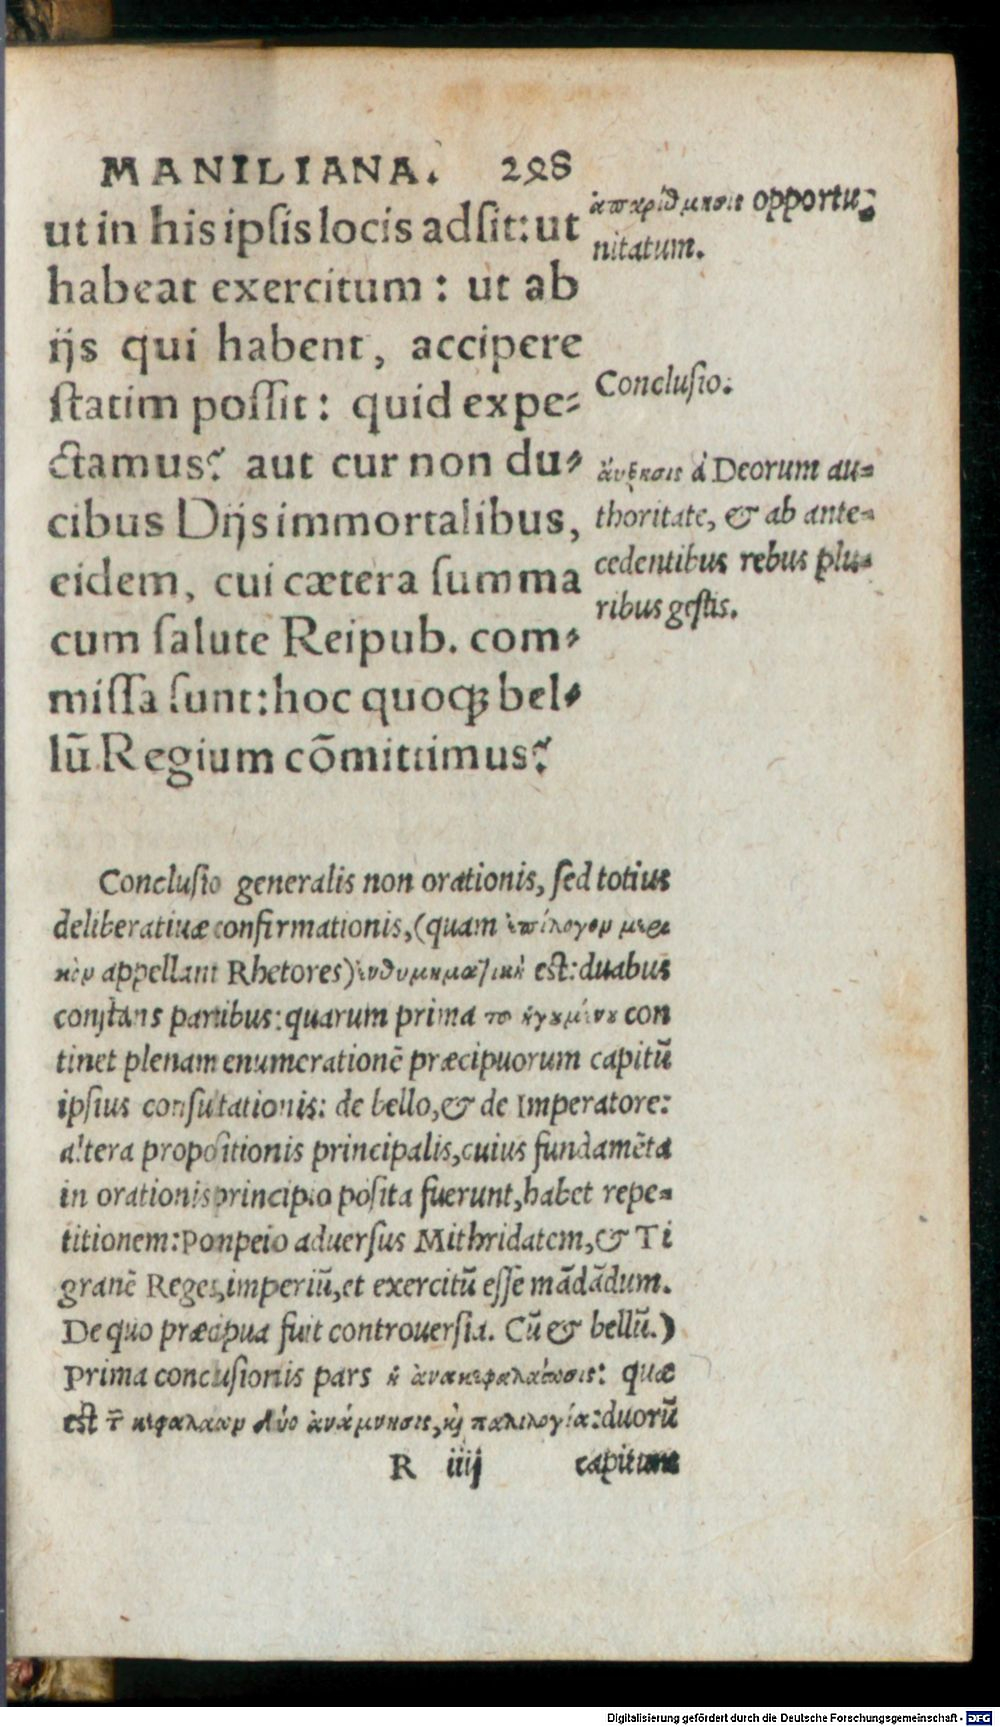 MANILIANA. 298
ut in his ipsis locis adsit: ut
habeat exercitum : ut ab
ijs qui habent, accipere
statim possit: quid expe-
ctamus? aut cur non du-
cibus Dijs immortalibus,
eidem, cui cætera summa
cum salute Reipub. com-
missa sunt: hoc quoq; bel-
lū Regium cōmittimus?
ἀπαρίθμησις opportu-
nitatum.
Conclusio.
ἄυξησις à Deorum au-
thoritate, & ab ante-
cedentibus rebus plu-
ribus gestis.
Conclusio generalis non orationis, sed totius
deliberatiuæ confirmationis, (quam ἐπίλογον μερι
κὸν appellant Rhetores) ἐνθυμηματικὴ est: duabus
constans partibus: quarum prima τοῦ ἡγουμένου con
tinet plenam enumerationē præcipuorum capitū
ipsius consultationis: de bello, & de Imperatore:
altera propositionis principalis, cuius fundamēta
in orationis principio posita fuerunt, habet repe-
titionem: Ponpeio aduersus Mithridatem, & Ti
granē Reges, imperiū, et exercitū esse mādādum.
De quo præcipua fuit controuersia. Cū & bellū.)
Prima conclusionis pars ἡ ἀνακεφαλαίωσις: quæ
est τῶν κεφαλαίων δύο ἀνάμνησις, κὶ παλιλογία: duorū
R iiij capitum
Digitalisierung gefördert durch die Deutsche Forschungsgemeinschaft - DFG